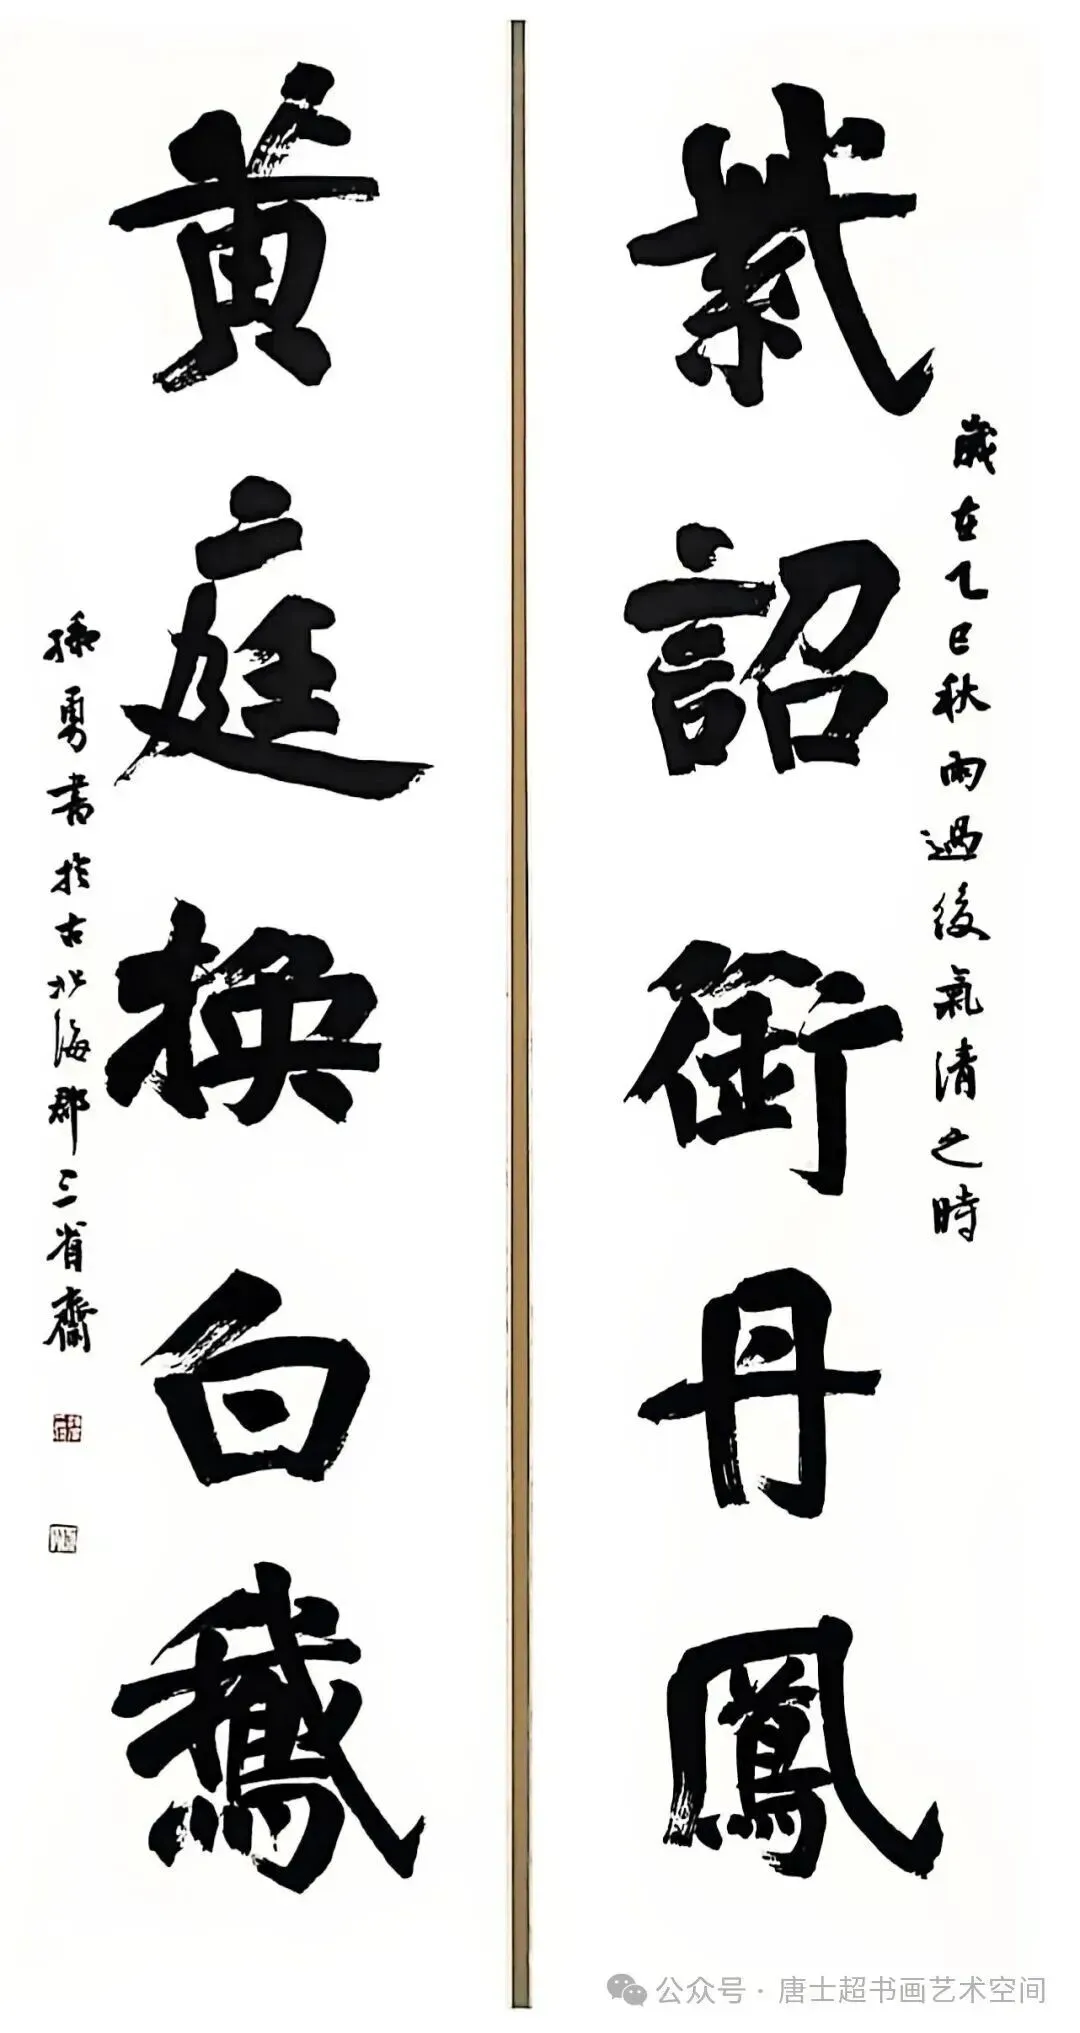 紫詔銜丹鳳
歲在乙巳秋雨過後氣清之時
黃庭換白鵝
孫勇書於古北海郡三省齋
公众号·唐士超书画艺术空间